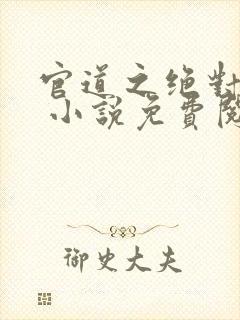 官道之绝對
小說免費閱
御史大夫